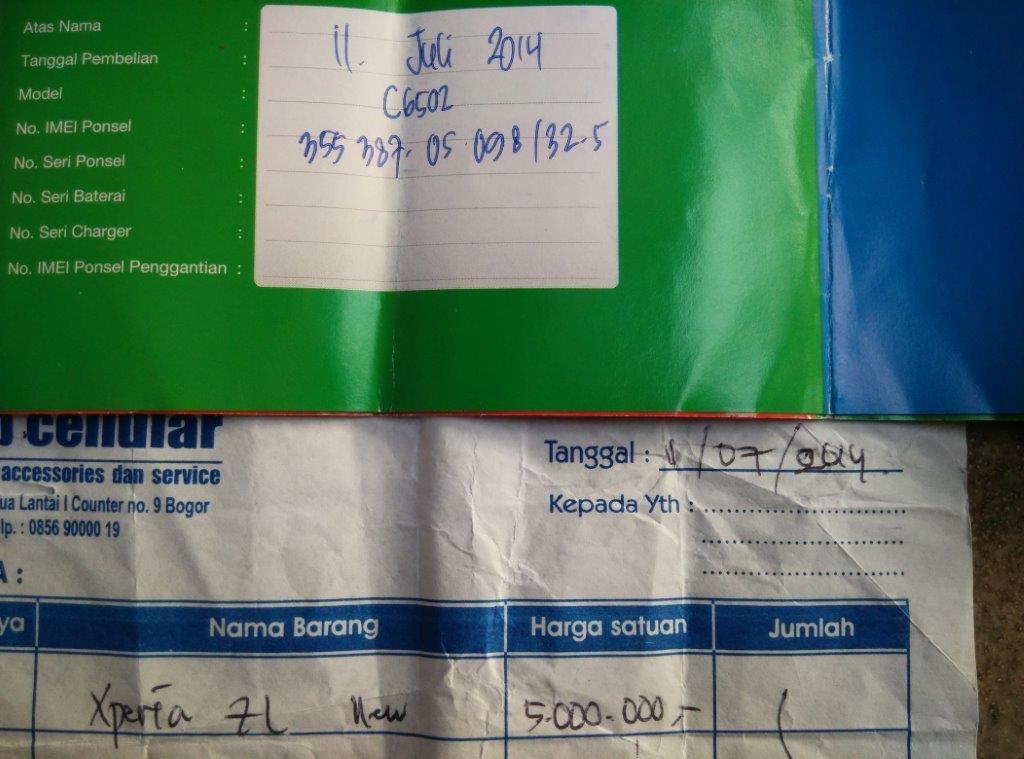 Atas Nama :
Tanggal Pembelian : 11. Juli 2014
Model : C6502
No. IMEI Ponsel : 355 387. 05 098132.5
No. Seri Ponsel :
No. Seri Baterai :
No. Seri Charger :
No. IMEI Ponsel Penggantian :
cellular
accessories dan service
ua Lantai I Counter no. 9 Bogor
lp. : 0856 90000 19
Tanggal : 11/07/2014
Kepada Yth :
A :
ya Nama Barang Harga satuan Jumlah
Xperia ZL New 5.000.000,-